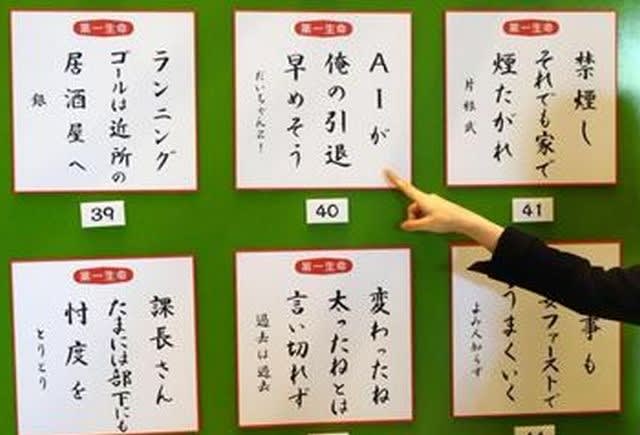 第一生命
ランニング
ゴールは近所の
居酒屋へ
銀
39
第一生命
AIが
俺の引退
早めそう
だいちゃんZ!
40
第一生命
禁煙し
それでも家で
煙たがれ
41
第一生命
課長さん
たまには部下にも
忖度を
とりとり
第一生命
変わったね
太ったねとは
言い切れず
過去は過去
事も
ファーストで
うまくいく
よみ人知らず